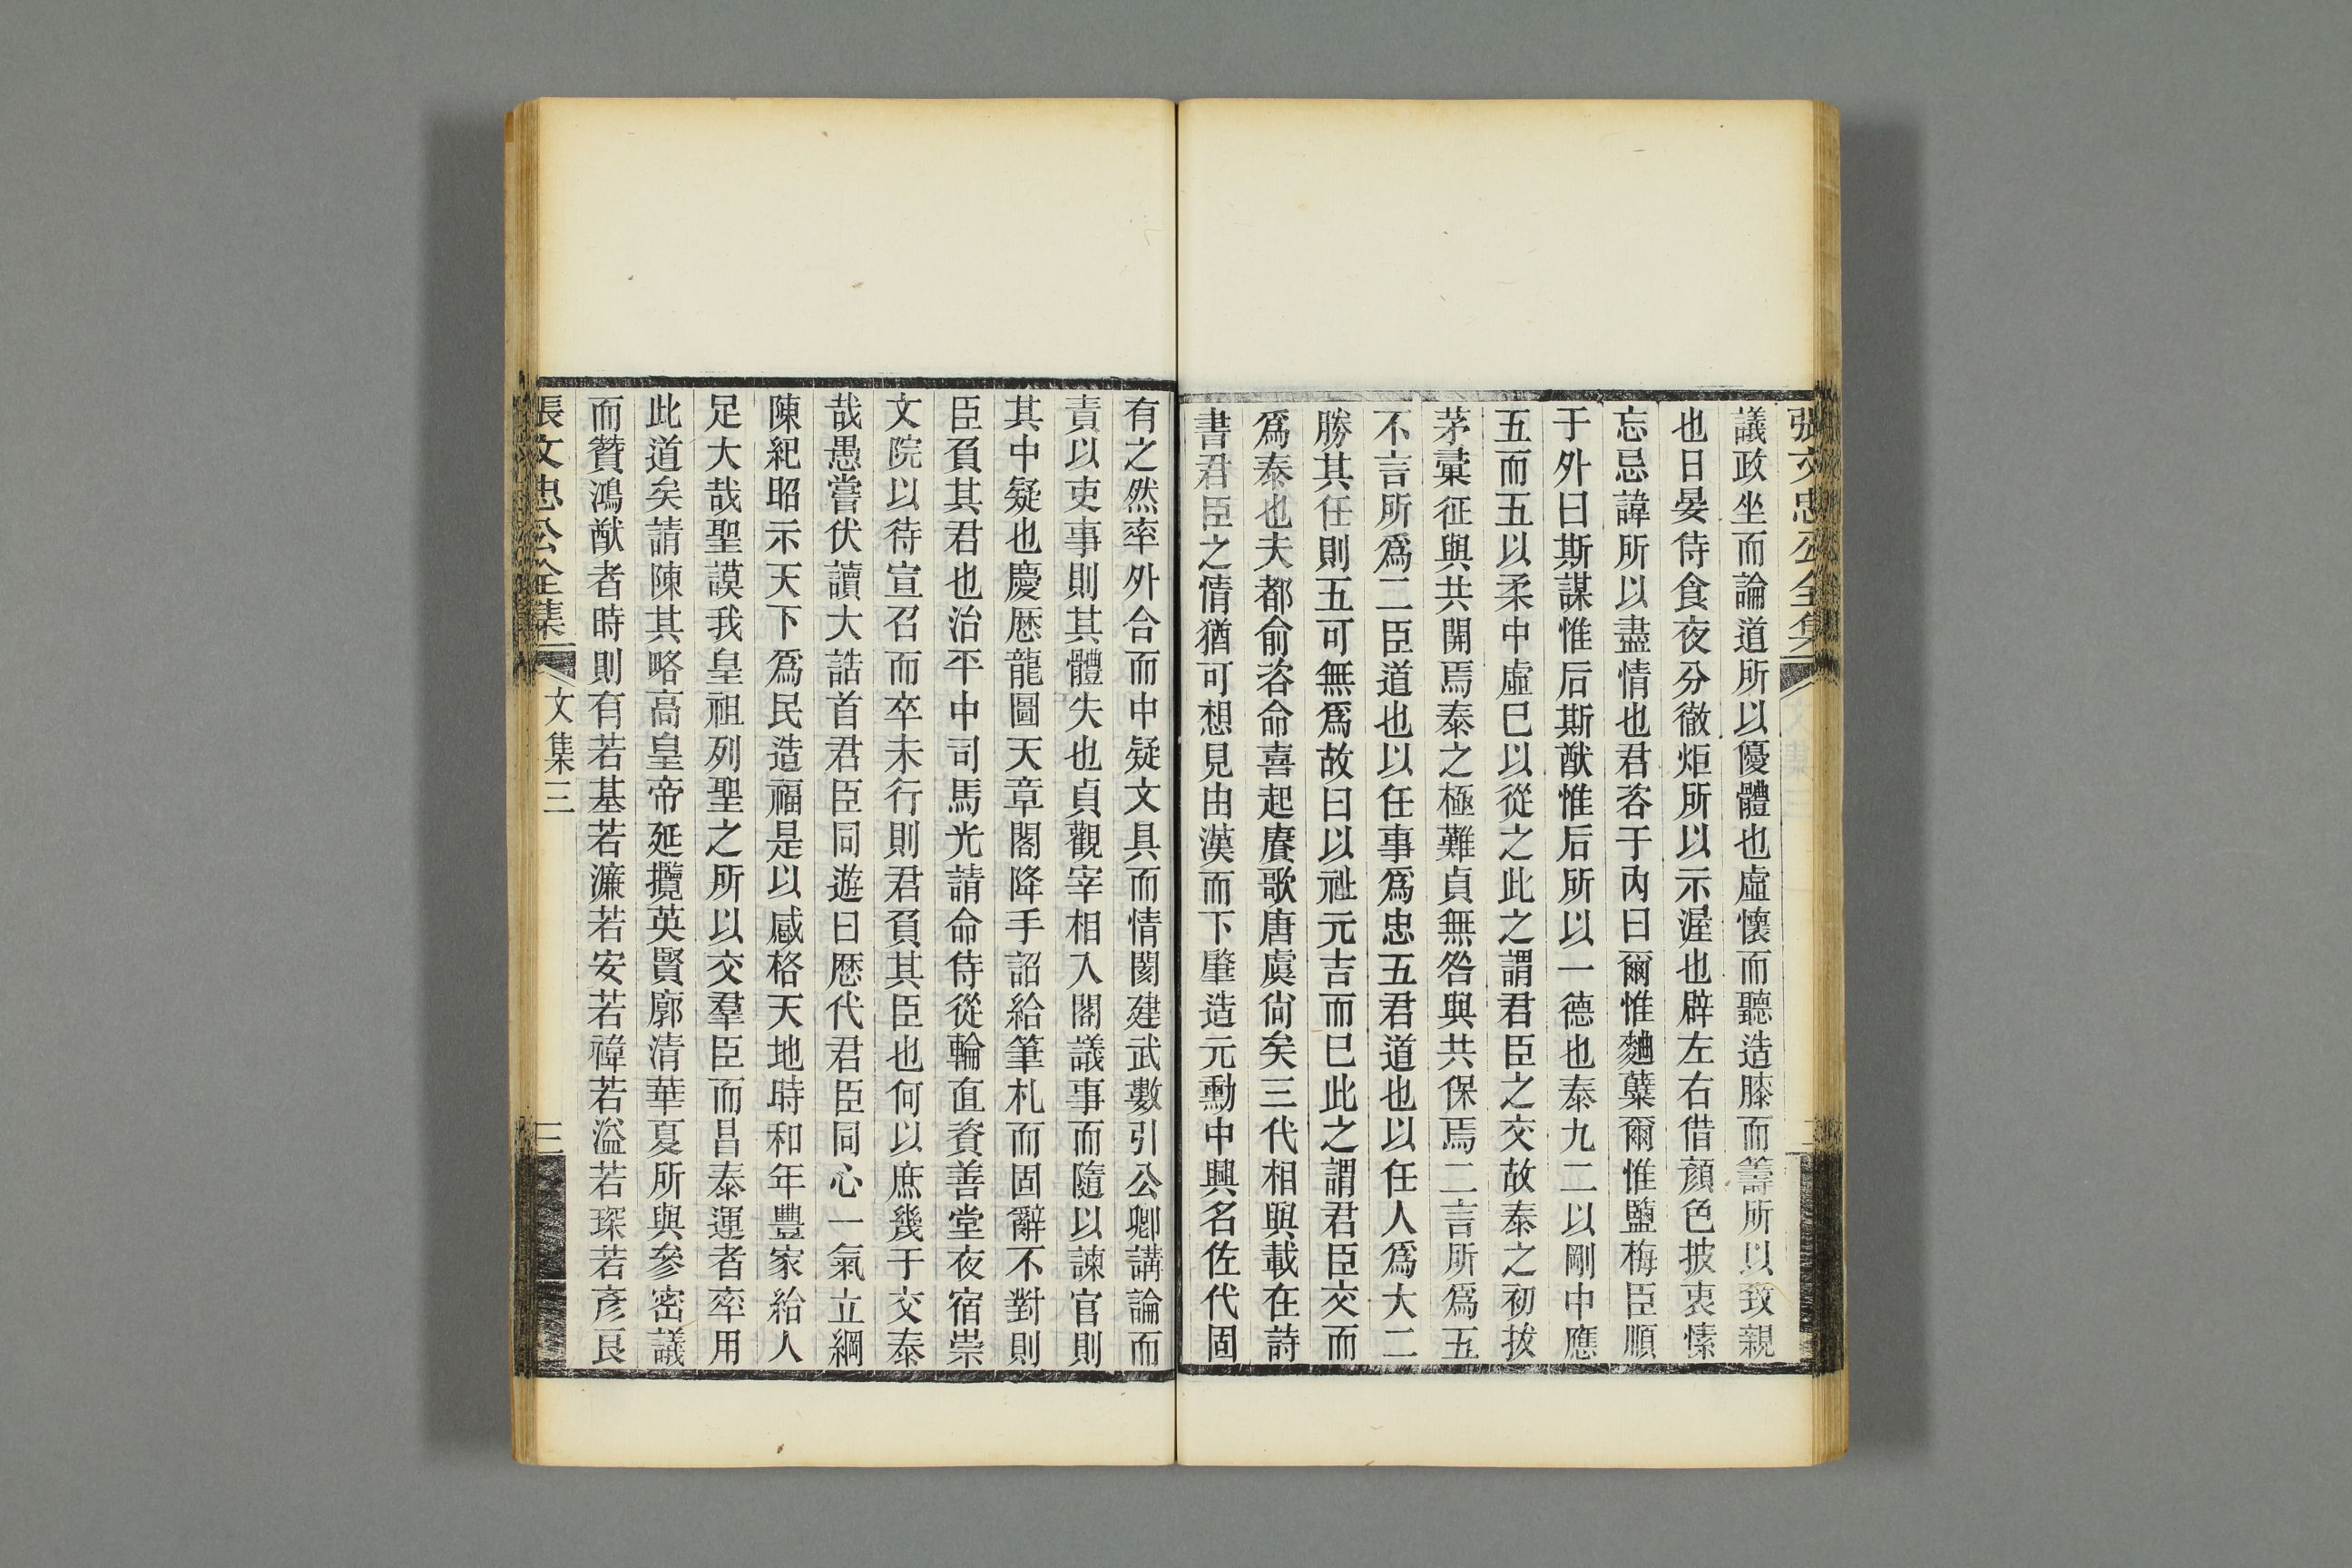 張文忠公全集
議政坐而論道所以優體也虛懷而聽造膝而籌所以致親
也日晏侍食夜分徹炬所以示渥也辟左右借顏色披衷愫
忘忌諱所以盡情也君咨于內曰爾惟麯糵爾惟鹽梅臣順
于外曰斯謀惟后斯猷惟后所以一德也泰九二以剛中應
五而五以柔中虛巳以從之此之謂君臣之交故泰之初拔
茅彙征與共開焉泰之極艱貞無咎與共保焉二言所爲五
不言所爲二臣道也以任事爲忠五君道也以任人爲大二
勝其任則五可無爲故曰以祉元吉而巳此之謂君臣交而
爲泰也夫都俞咨命喜起賡歌唐虞尙矣三代相與載在詩
書君臣之情猶可想見由漢而下肇造元勳中興名佐代固
有之然率外合而中疑文具而情闋建武數引公卿講論而
責以吏事則其體失也貞觀宰相入閣議事而隨以諫官則
其中疑也慶厯龍圖天章閣降手詔給筆札而固辭不對則
臣負其君也治平中司馬光請命侍從輪直資善堂夜宿崇
文院以待宣召而卒未行則君負其臣也何以庶幾于交泰
哉愚嘗伏讀大誥首君臣同遊曰厯代君臣同心一氣立綱
陳紀昭示天下爲民造福是以感格天地時和年豐家給人
足大哉聖謨我皇祖列聖之所以交羣臣而昌泰運者率用
此道矣請陳其略高皇帝延攬英賢廓清華夏所與參密議
而贊鴻猷者時則有若基若濂若安若禕若溢若琛若彥良
張文忠公全集
文集三
三